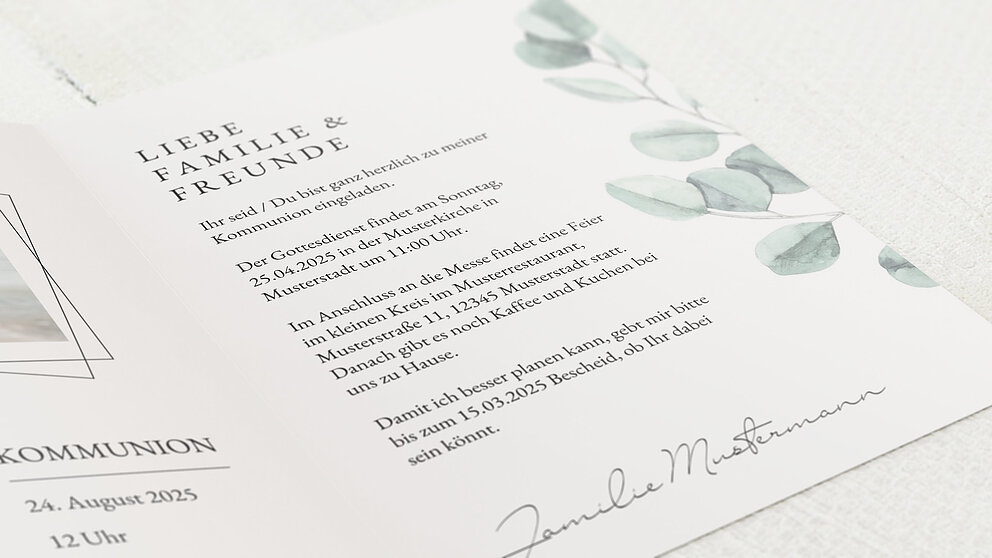 KOMMUNION
24. August 2025
12 Uhr
LIEBE
FAMILIE &
FREUNDE
Ihr seid / Du bist ganz herzlich zu meiner
Kommunion eingeladen.
Der Gottesdienst findet am Sonntag,
25.04.2025 in der Musterkirche in
Musterstadt um 11:00 Uhr.
Im Anschluss an die Messe findet eine Feier
im kleinen Kreis im Musterrestaurant,
Musterstraße 11, 12345 Musterstadt statt.
Danach gibt es noch Kaffee und Kuchen bei
uns zu Hause.
Damit ich besser planen kann, gebt mir bitte
bis zum 15.03.2025 Bescheid, ob Ihr dabei
sein könnt.
Familie Mustermann